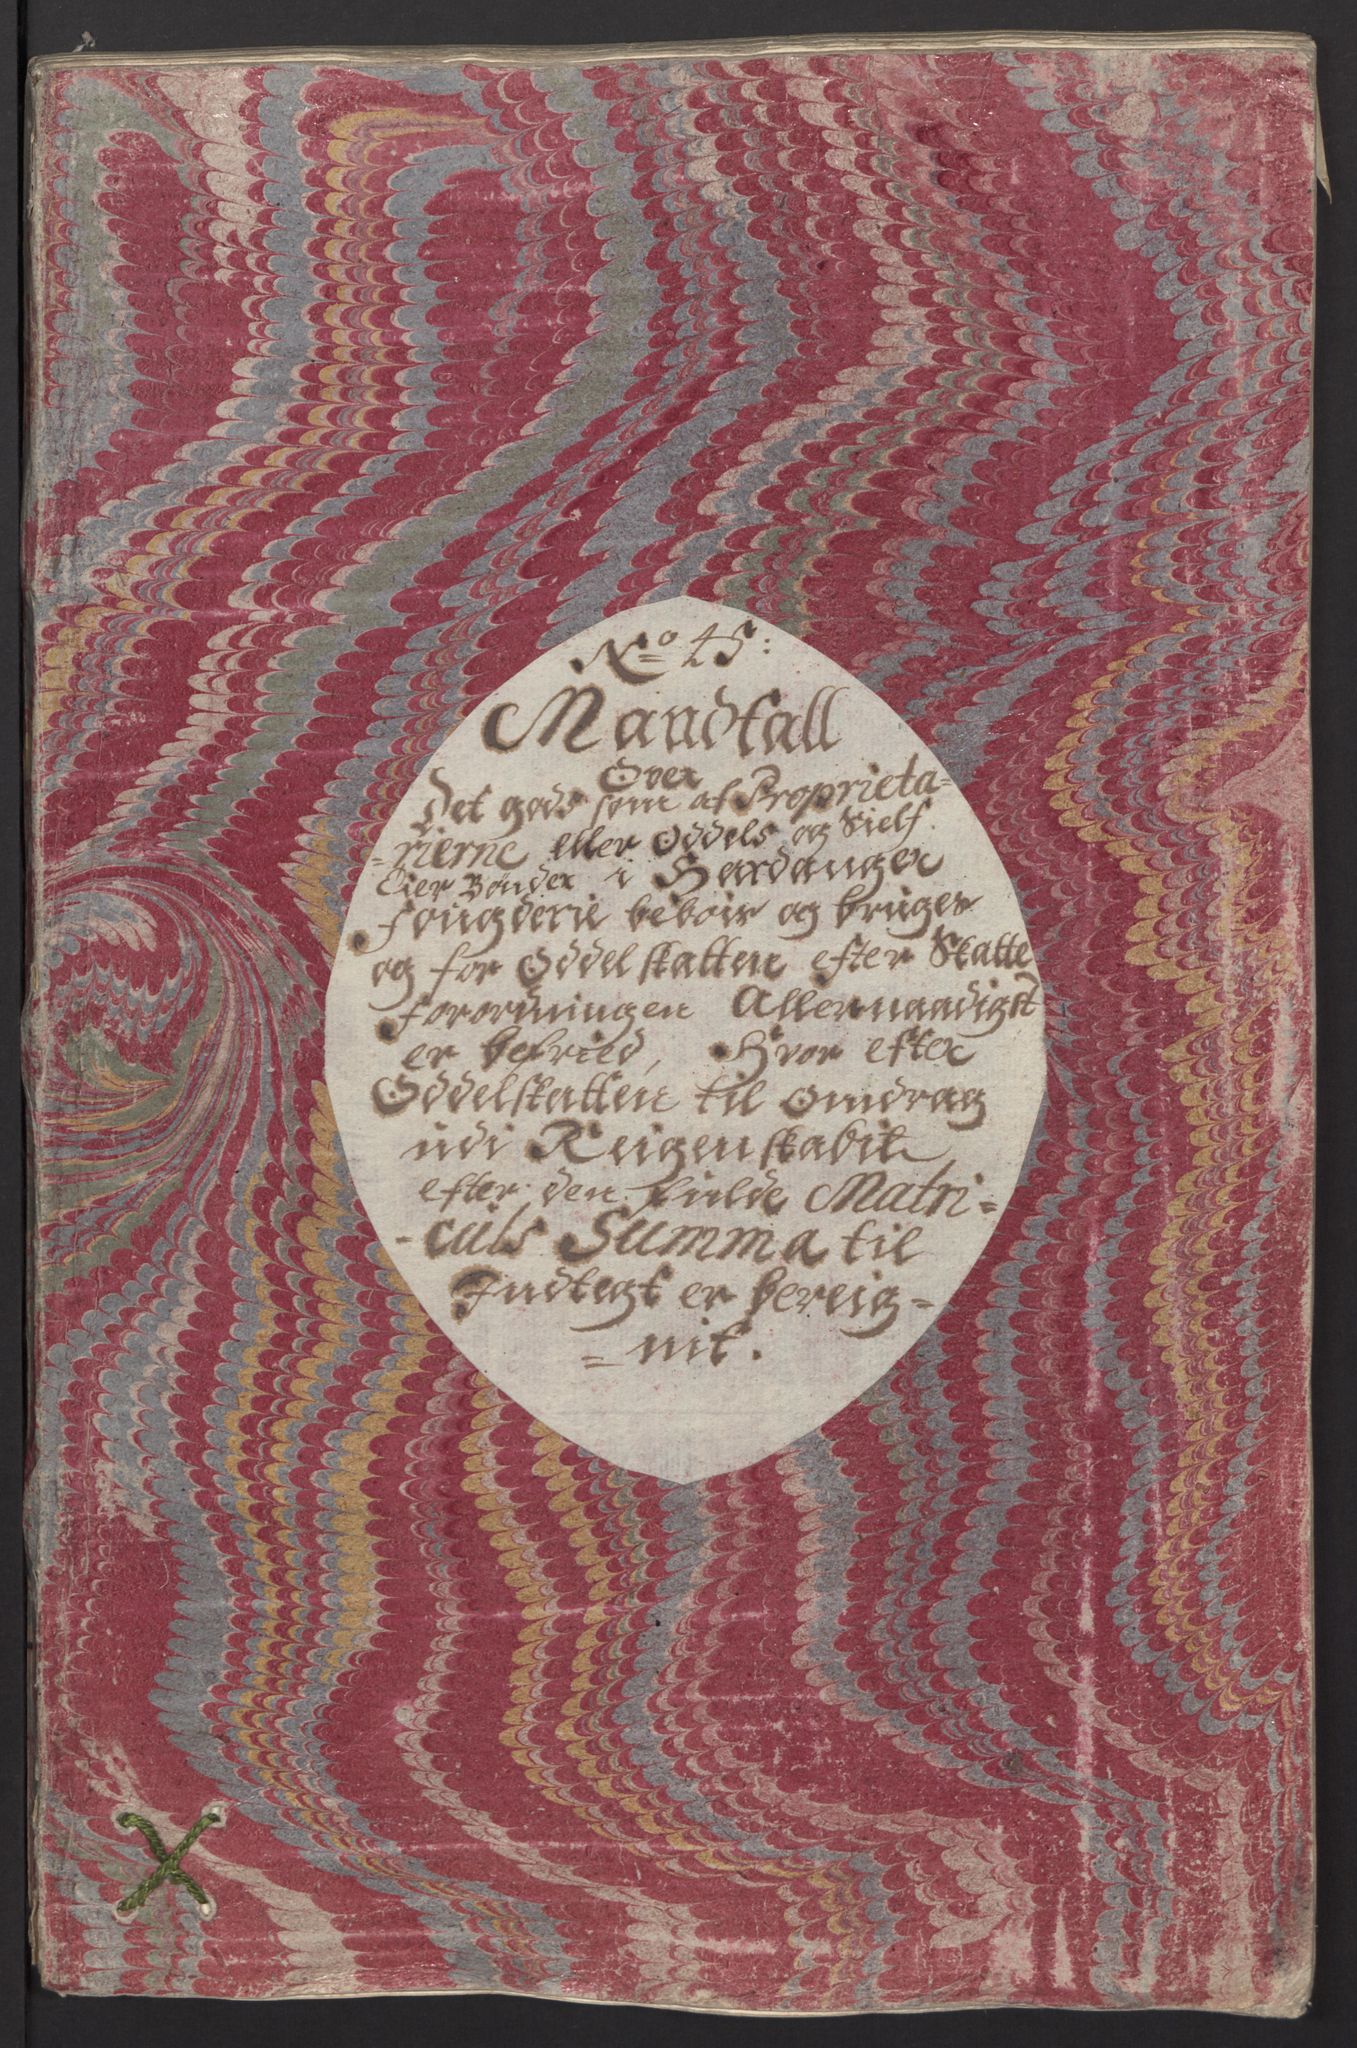 No 45:
Mandtall
Over
Det gods som af Proprieta-
-rierne eller Oddels og Sielf
Eier Bönder i Hardanger
fougderie beboir og bruger
og for Oddelskatten efter Skatte
forordningen Allernaadigst
er befried, Hvor efter
Oddelskatten til omdrag
udi Reigenskabit
efter den fulde Matri=
-culs Summa til
Indtegt er bereig=
=nit.